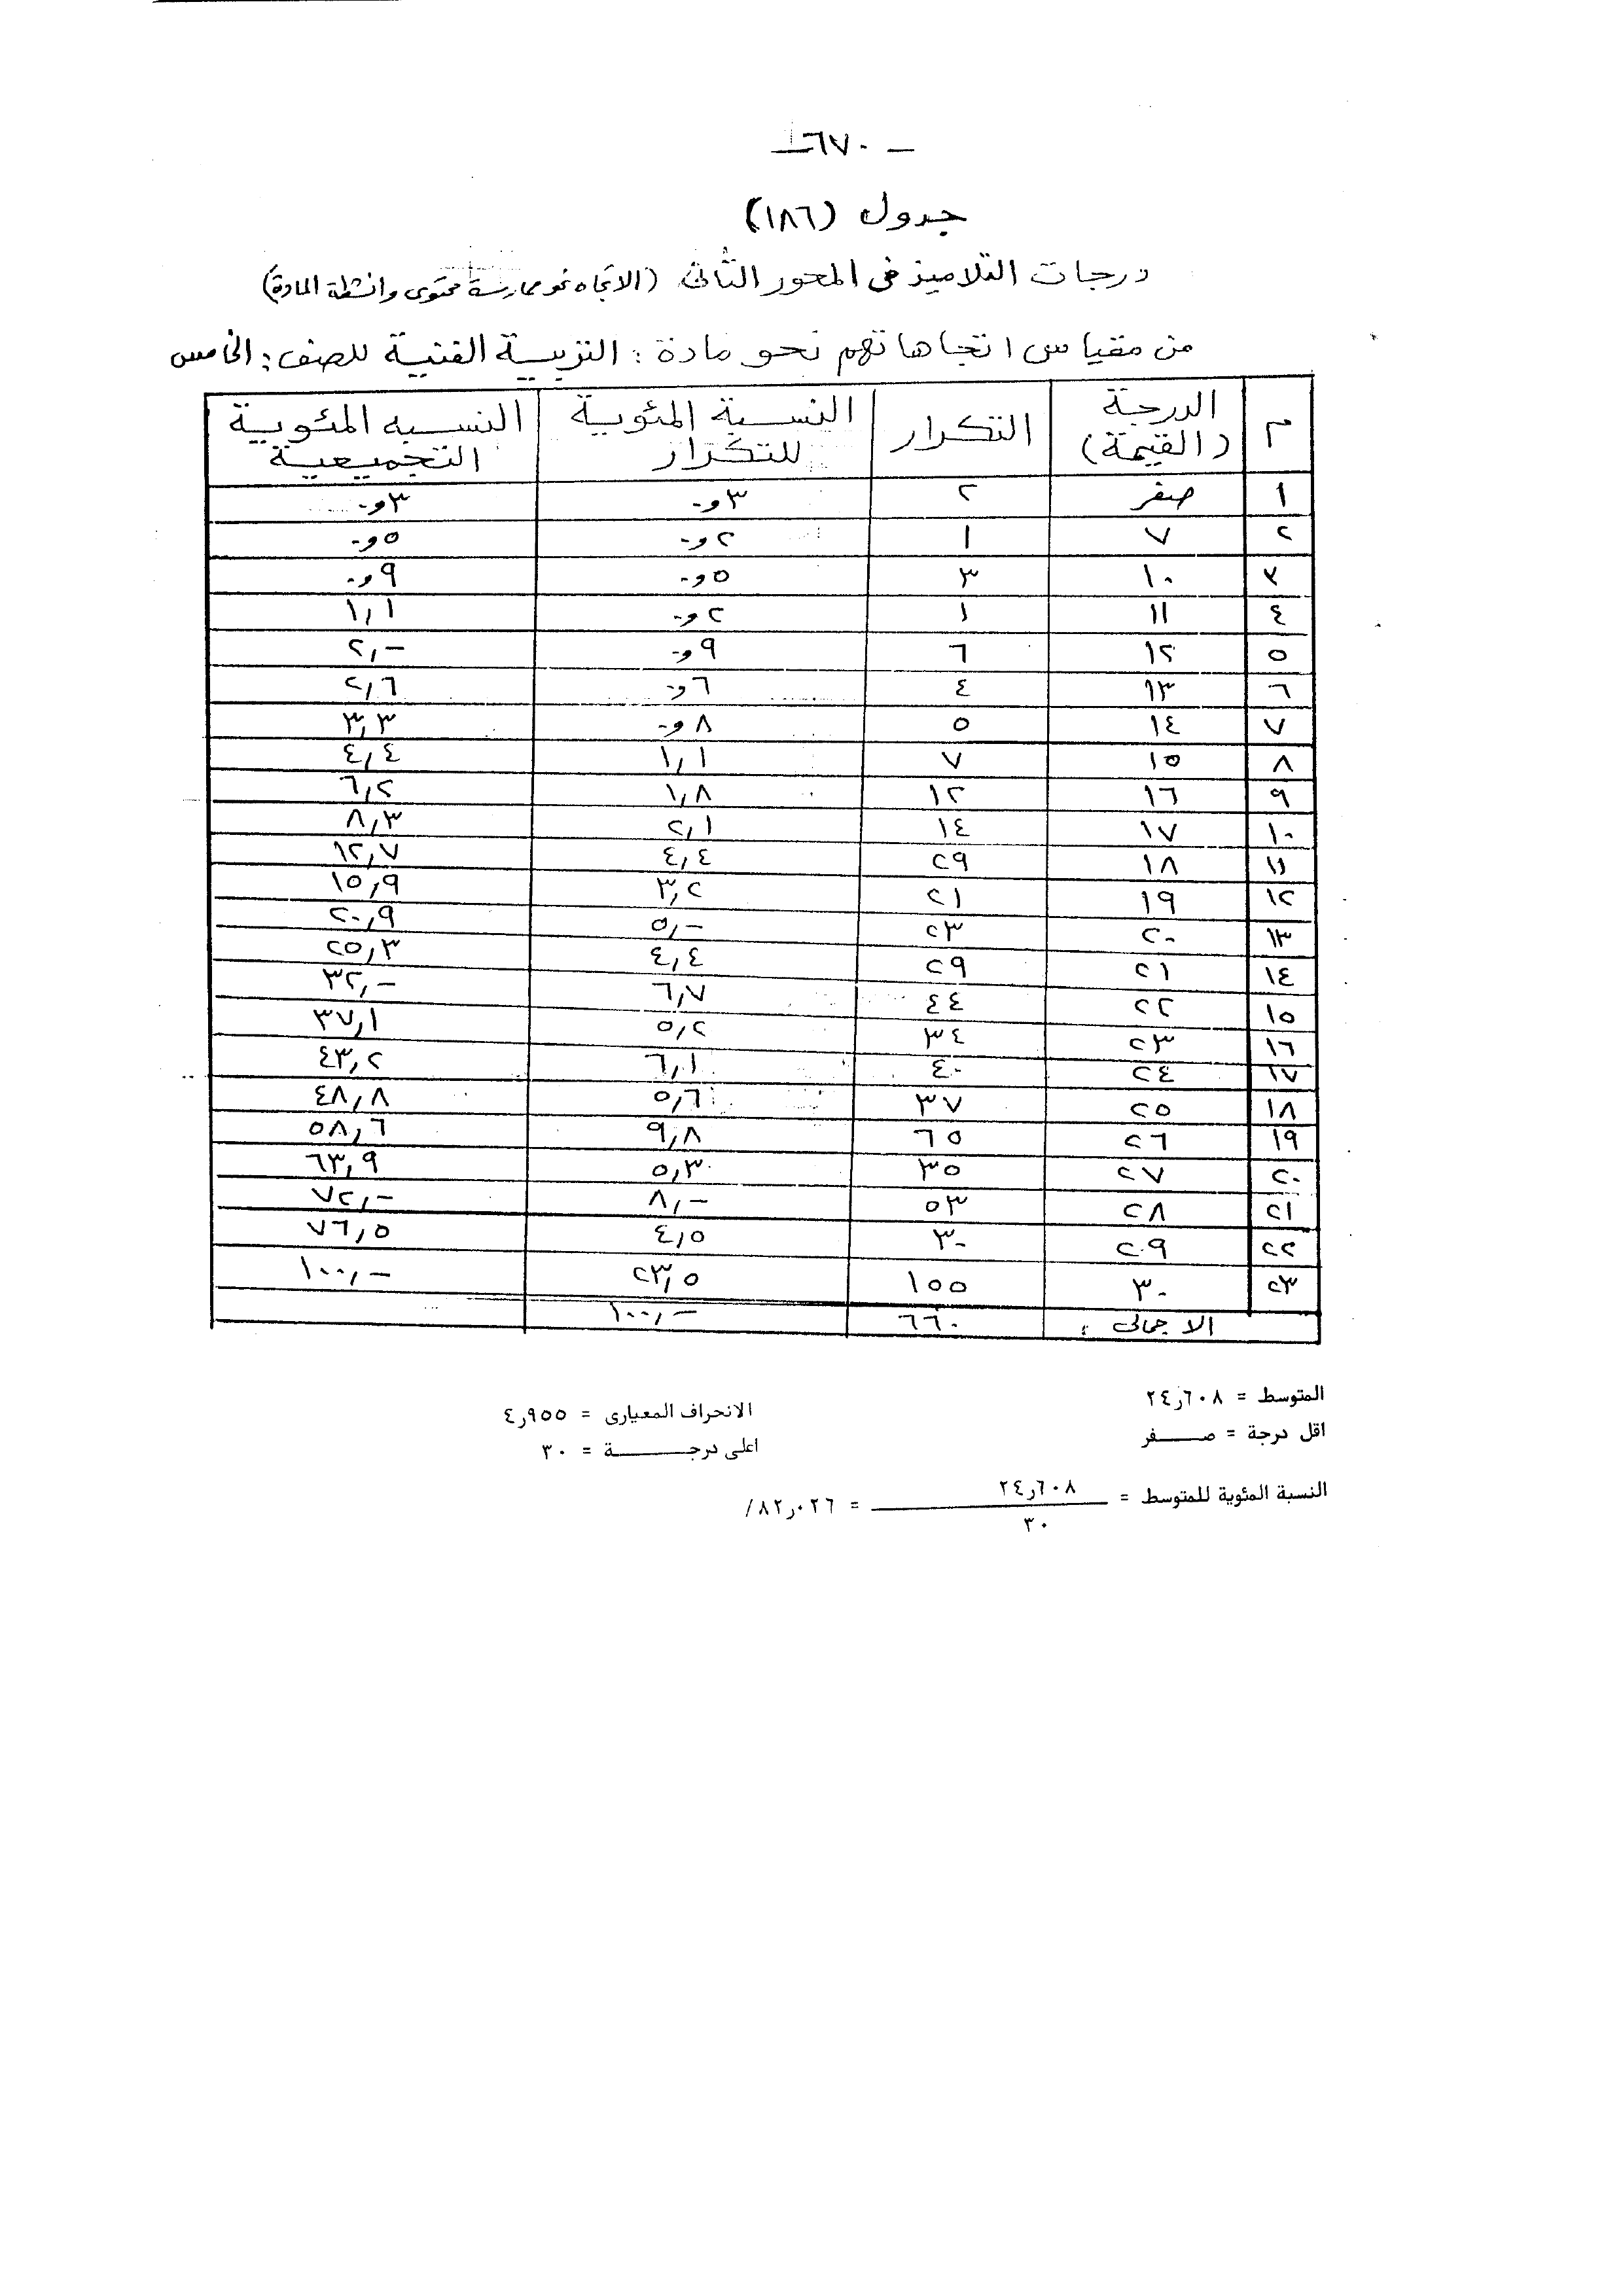 - ٦٧٠ -
جدول (١٨٦)
درجات التلاميذ فى المحور الثانى (الاتجاه نحو ممارسة محتوى وانشطة المادة)
من مقياس اتجاهاتهم نحو مادة : التربيية الفنية للصف : الخامس
م الدرجة (القيمة) التكرار النسبة المئوية للتكرار النسبه المئويية التجميعية
١ صفر ٢ ٣و- ٣و-
٢ ٧ ١ ٢و- ٥و-
٣ ١٠ ٣ ٥و- ٩و-
٤ ١١ ١ ٢و- ١,١
٥ ١٢ ٦ ٩و- ٢,-
٦ ١٣ ٤ ٦و- ٢,٦
٧ ١٤ ٥ ٨و- ٣,٣
٨ ١٥ ٧ ١,١ ٤,٤
٩ ١٦ ١٢ ١,٨ ٦,٢
١٠ ١٧ ١٤ ٢,١ ٨,٣
١١ ١٨ ٢٩ ٤,٤ ١٢,٧
١٢ ١٩ ٢١ ٣,٢ ١٥,٩
١٣ ٢٠ ٢٣ ٥,- ٢٠,٩
١٤ ٢١ ٢٩ ٤,٤ ٢٥,٣
١٥ ٢٢ ٤٤ ٦,٧ ٣٢,-
١٦ ٢٣ ٣٤ ٥,٢ ٣٧,١
١٧ ٢٤ ٤٠ ٦,١ ٤٣,٢
١٨ ٢٥ ٣٧ ٥,٦ ٤٨,٨
١٩ ٢٦ ٦٥ ٩,٨ ٥٨,٦
٢٠ ٢٧ ٣٥ ٥,٣ ٦٣,٩
٢١ ٢٨ ٥٣ ٨,- ٧٢,-
٢٢ ٢٩ ٣٠ ٤,٥ ٧٦,٥
٢٣ ٣٠ ١٥٥ ٢٣,٥ ١٠٠,-
الاجمالى : ٦٦٠ ١٠٠,-
المتوسط = ٢٤ر٦٠٨ الانحراف المعيارى = ٤ر٩٥٥
اقل درجة = صفر اعلى درجة = ٣٠
النسبة المئوية للمتوسط = ٢٤ر٦٠٨ / ٣٠ = ٨٢ر٠٢٦٪